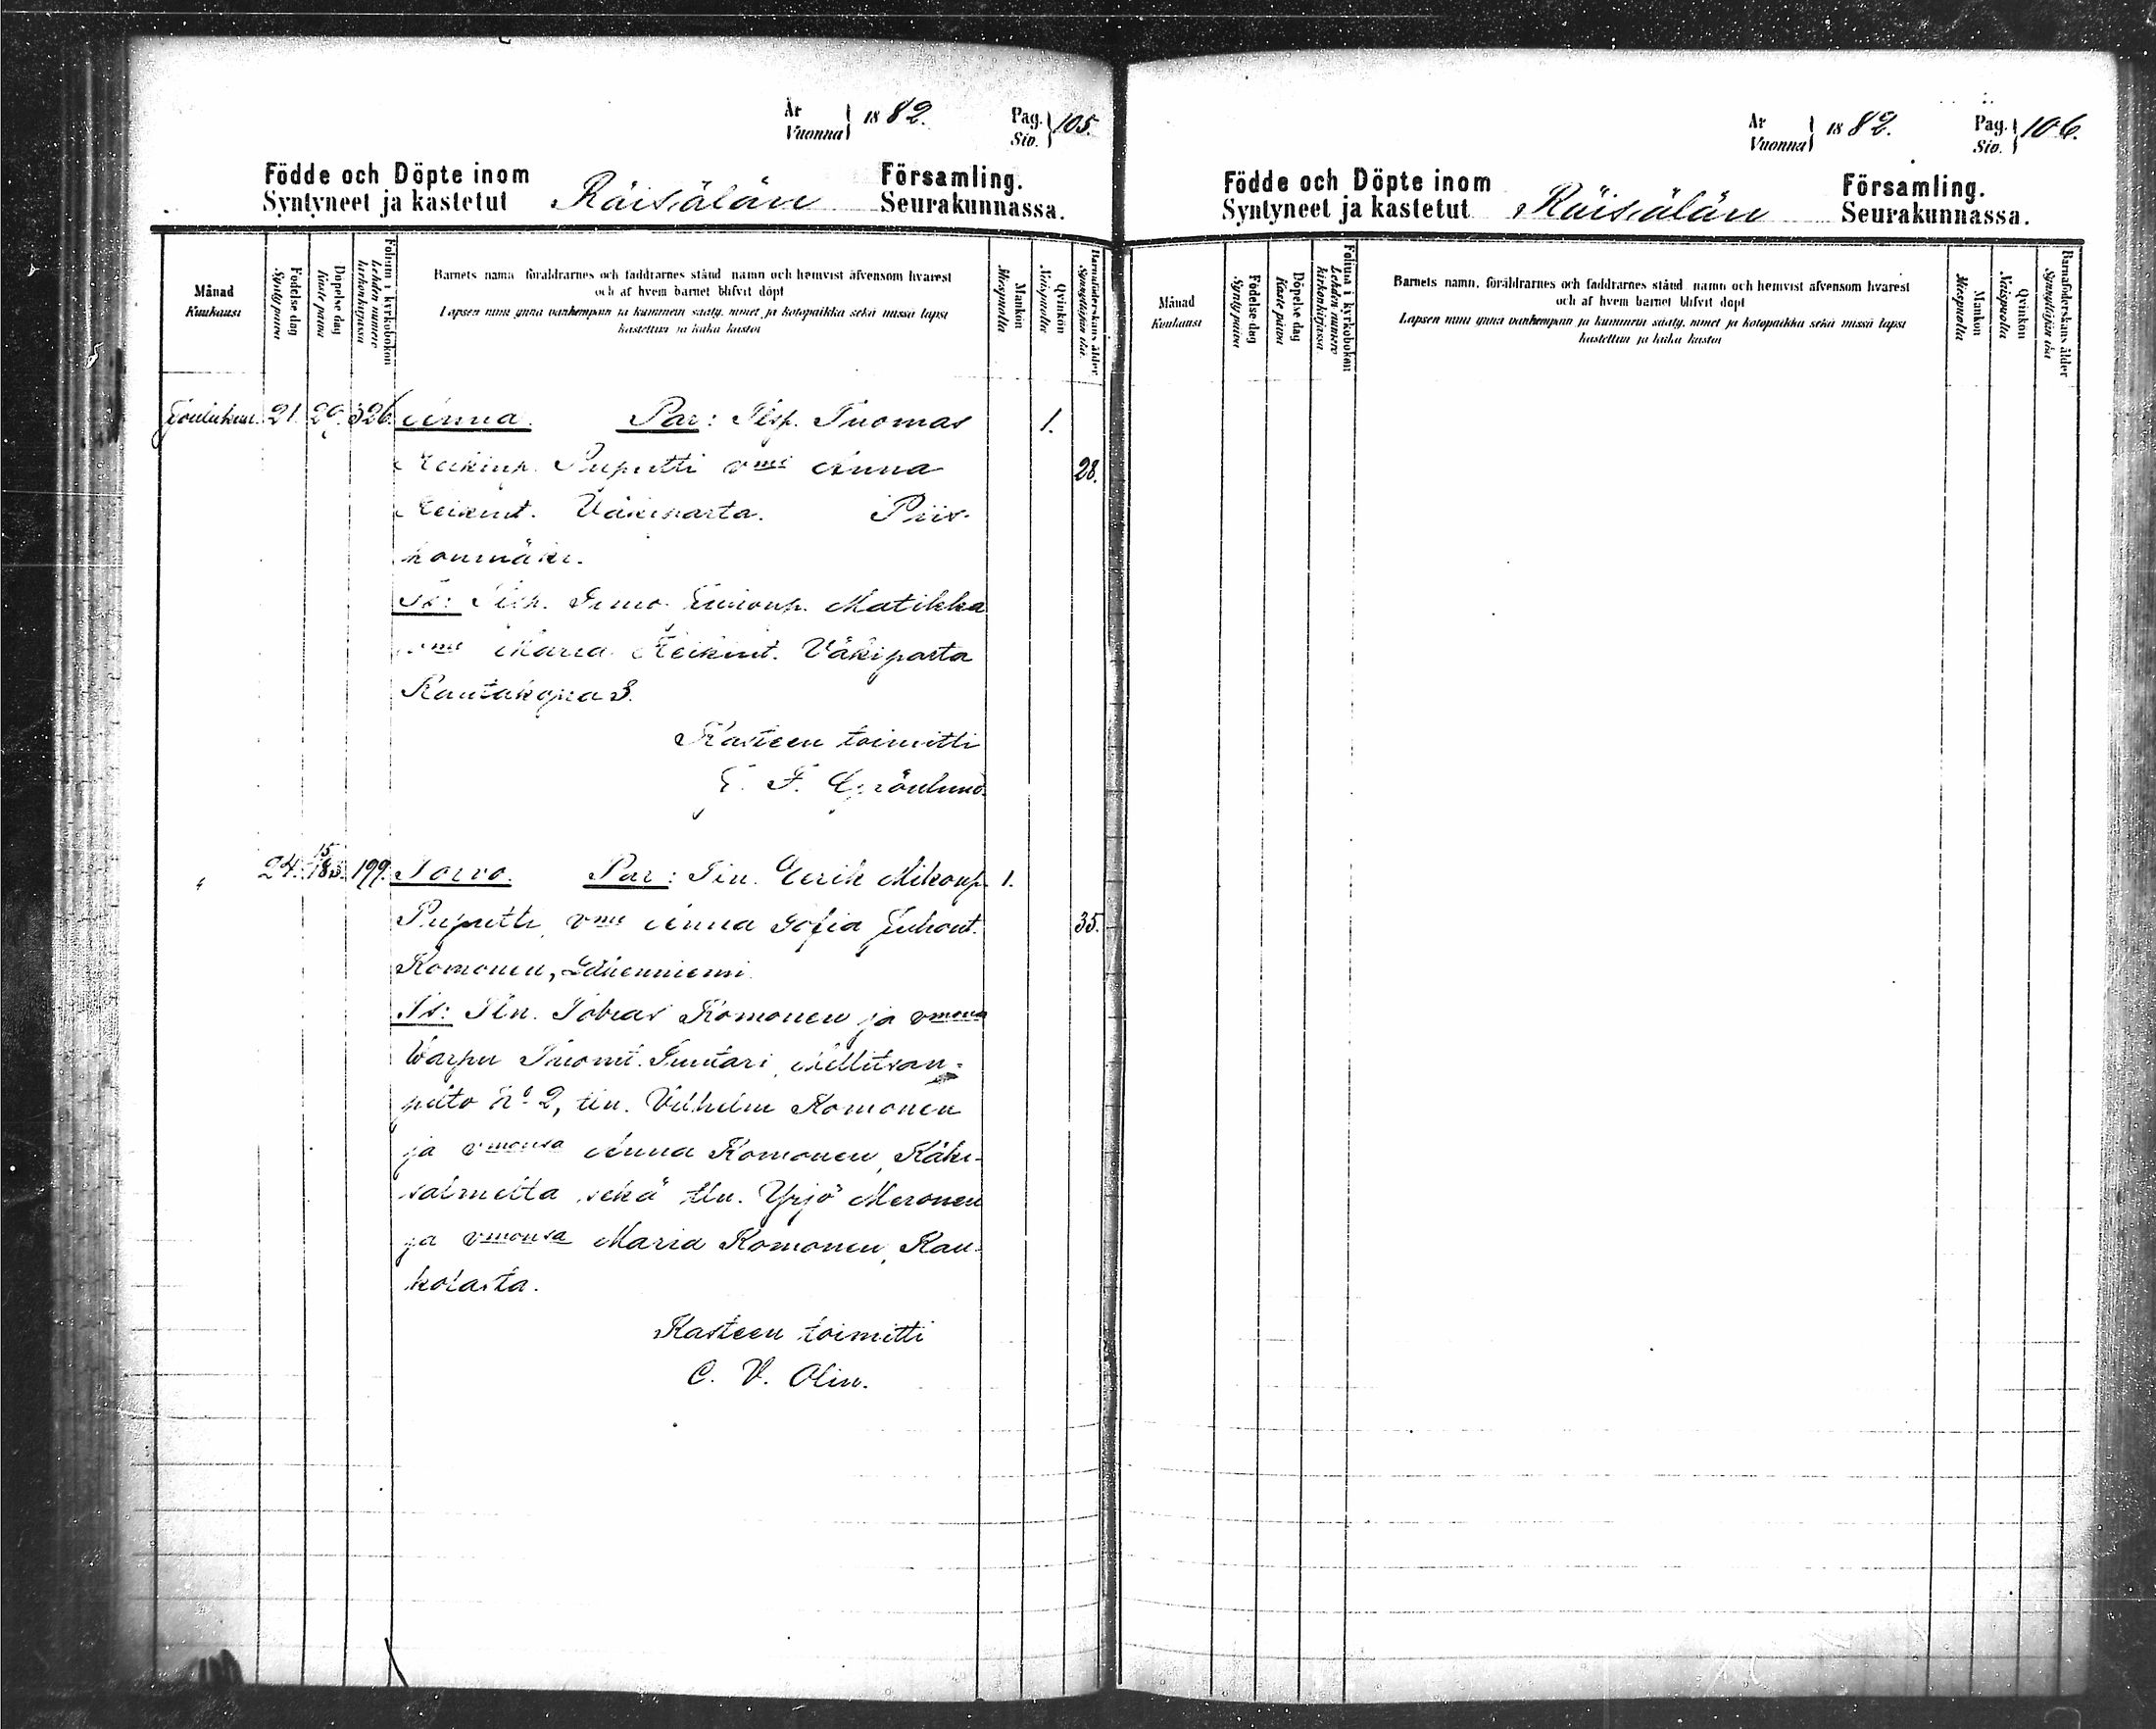 År 1882. Pag. 105.
Vuonna Siv.
Födde och Döpte inom Räisälän Församling.
Syntyneet ja kastetut Seurakunnassa.
Månad
Kuukausi
Födelse dag
Synty päivä
Döpelse dag
Kaste päivä
Folium i kyrkoboken
Lehden numero
kirkonkirjassa
Barnets namn föräldrarnes och faddrarnes stånd namn och hemvist äfvensom hvarest
och af hvem barnet blifvit döpt
Lapsen nimi ynnä vanhempain ja kummein sääty, nimet ja kotopaikka sekä missä lapsi
kastettiin ja kuka kastoi
Mankön
Miespuolia
Qvinkön
Naispuolia
Barnaföderskans ålder
Synnyttäjän ikä
Joulukuu. 21. 29. 326. Anna. Par: Tlsp. Tuomas 1.
Heikinp. Puputti vmi Anna 28.
Heikint. Väkiparta. Piis-
konmäki.
Tk: Simo Simonp. Matikka
vmi Maria Heikint. Väkiparta
Rautakopra 3.
Kasteen toimitti
G. F. Grönlund.
" 24. 15/1 83. 199. Toivo. Par: Tln. Eerik Mikonp. 1.
Puputti, vmi Anna Sofia Juhont. 35.
Komonen, Särkenniemi.
Tk: Tln. Tobias Komonen ja vmonsa
Warpu Tuomt. Suutari, Millitsan-
pelto No 2, tln. Vilhelm Komonen
ja vmonsa Anna Komonen, Käki-
salmelta, sekä tln. Yrjö Meronen
ja vmonsa Maria Komonen, Kau-
kolasta.
Kasteen toimitti
C. V. Olin.
År 1882. Pag. 106.
Vuonna Siv.
Födde och Döpte inom Räisälän Församling.
Syntyneet ja kastetut Seurakunnassa.
Månad
Kuukausi
Födelse dag
Synty päivä
Döpelse dag
Kaste päivä
Folium i kyrkoboken
Lehden numero
kirkonkirjassa
Barnets namn, föräldrarnes och faddrarnes stånd namn och hemvist äfvensom hvarest
och af hvem barnet blifvit döpt
Lapsen nimi ynnä vanhempain ja kummein sääty, nimet ja kotopaikka sekä missä lapsi
kastettiin ja kuka kastoi
Mankön
Miespuolia
Qvinkön
Naispuolia
Barnaföderskans ålder
Synnyttäjän ikä